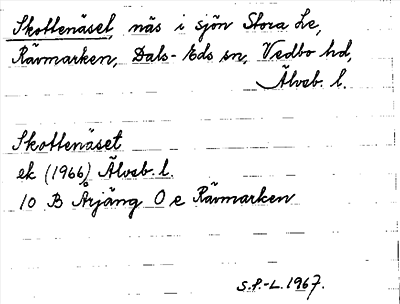 Skottenäset, näs i sjön Stora Le,
Rävmarken, Dals-Eds sn, Vedbo hd,
Älvsb. l.
Skottenäset
ek (1966) Älvsb. l.
10 B Årjäng 0 e Rävmarken
S.P.-L. 1967.